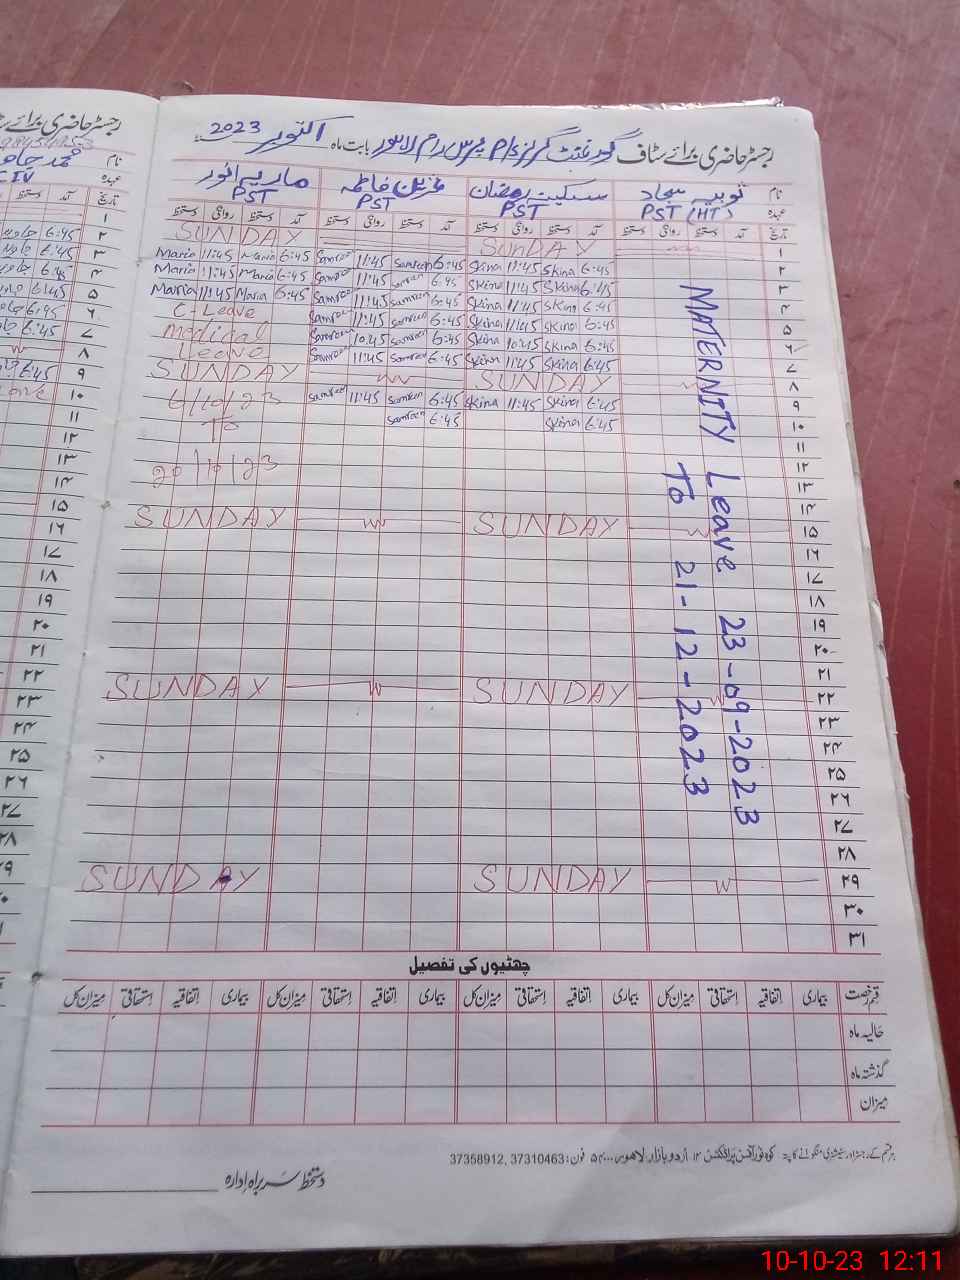 رجسٹر حاضری برائے سٹاف گورنمنٹ گرلز P/S پرس رام لاہور بابت ماہ اکتوبر 2023
نام ثوبیہ سجاد سکینہ رمضان ثمرین فاطمہ ماریہ انور
عہدہ PST (HT) PST PST PST
تاریخ آمد دستخط روانگی دستخط آمد دستخط روانگی دستخط آمد دستخط روانگی دستخط آمد دستخط روانگی دستخط
۱ SUNDAY SUNDAY
۲ 6:45 Skina 11:45 Skina 6:45 Samreen 11:45 Samreen 6:45 Maria 11:45 Maria
۳ 6:45 Skina 11:45 Skina 6:45 Samreen 11:45 Samreen 6:45 Maria 11:45 Maria
۴ 6:45 Skina 11:45 Skina 6:45 Samreen 11:45 Samreen 6:45 Maria 11:45 Maria
۵ 6:45 Skina 11:45 Skina 6:45 Samreen 11:45 Samreen C-Leave
۶ 6:45 Skina 10:45 Skina 6:45 Samreen 10:45 Samreen Medical
۷ 6:45 Skina 11:45 Skina 6:45 Samreen 11:45 Samreen Leave
۸ SUNDAY SUNDAY
۹ 6:45 Skina 11:45 Skina 6:45 Samreen 11:45 Samreen 6/10/23
۱۰ 6:45 Skina 6:45 Samreen To
۱۱
۱۲ 20/10/23
۱۳
۱۴
۱۵ SUNDAY SUNDAY
۱۶
۱۷
۱۸
۱۹
۲۰
۲۱
۲۲ SUNDAY SUNDAY
۲۳
۲۴
۲۵
۲۶
۲۷
۲۸
۲۹ SUNDAY SUNDAY
۳۰
۳۱
MATERNITY Leave 23-09-2023
To 21-12-2023
چھٹیوں کی تفصیل
قسم رخصت بیماری اتفاقیہ استحقاقی میزان کل بیماری اتفاقیہ استحقاقی میزان کل بیماری اتفاقیہ استحقاقی میزان کل بیماری اتفاقیہ استحقاقی میزان کل
حالیہ ماہ
گذشتہ ماہ
میزان
ہر قسم کے رجسٹر اور سٹیشنری منگوانے کا پتہ اردو بازار لاہور فون: 37310463 ,37358912
دستخط سربراہ ادارہ
رجسٹر حاضری برائے
نام محمد
عہدہ C IV
تاریخ آمد دستخط
۱
۲ 6:45
۳ 6:45
۴ 6:45
۵ 6:45
۶ 6:45
۷ 6:45
۸
۹ 6:45
۱۰
۱۱
۱۲
۱۳
۱۴
۱۵
۱۶
۱۷
۱۸
۱۹
۲۰
۲۱
۲۲
۲۳
۲۴
۲۵
۲۶
۲۷
۲۸
10-10-23 12:11